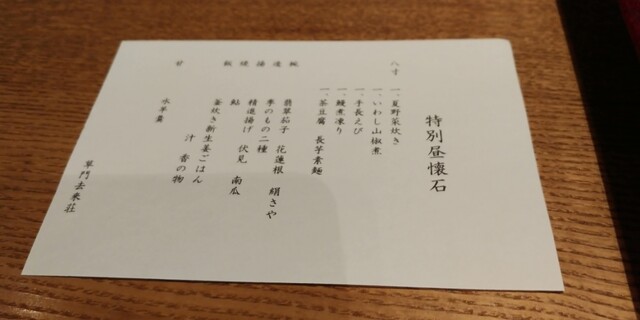 特別昼懐石
八寸
一、夏野菜炊き
一、いわし山椒煮
一、手長えび
一、鰻煮凍り
一、茶豆腐 長芋素麺
椀
翡翠茄子 花蓮根 絹さや
造
季のもの二種
揚
精進揚げ 伏見 南瓜
焼
鮎
飯
釜炊き新生姜ごはん
汁 香の物
甘
水羊羹
草門去来荘